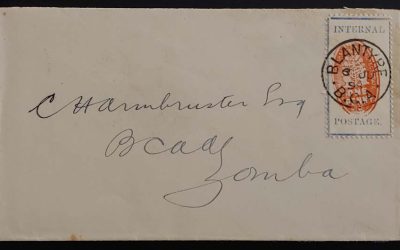 INTERNAL
POSTAGE.
BLANTYRE
B.C.A.
C Harmbruster Esq
BCA
Zomba